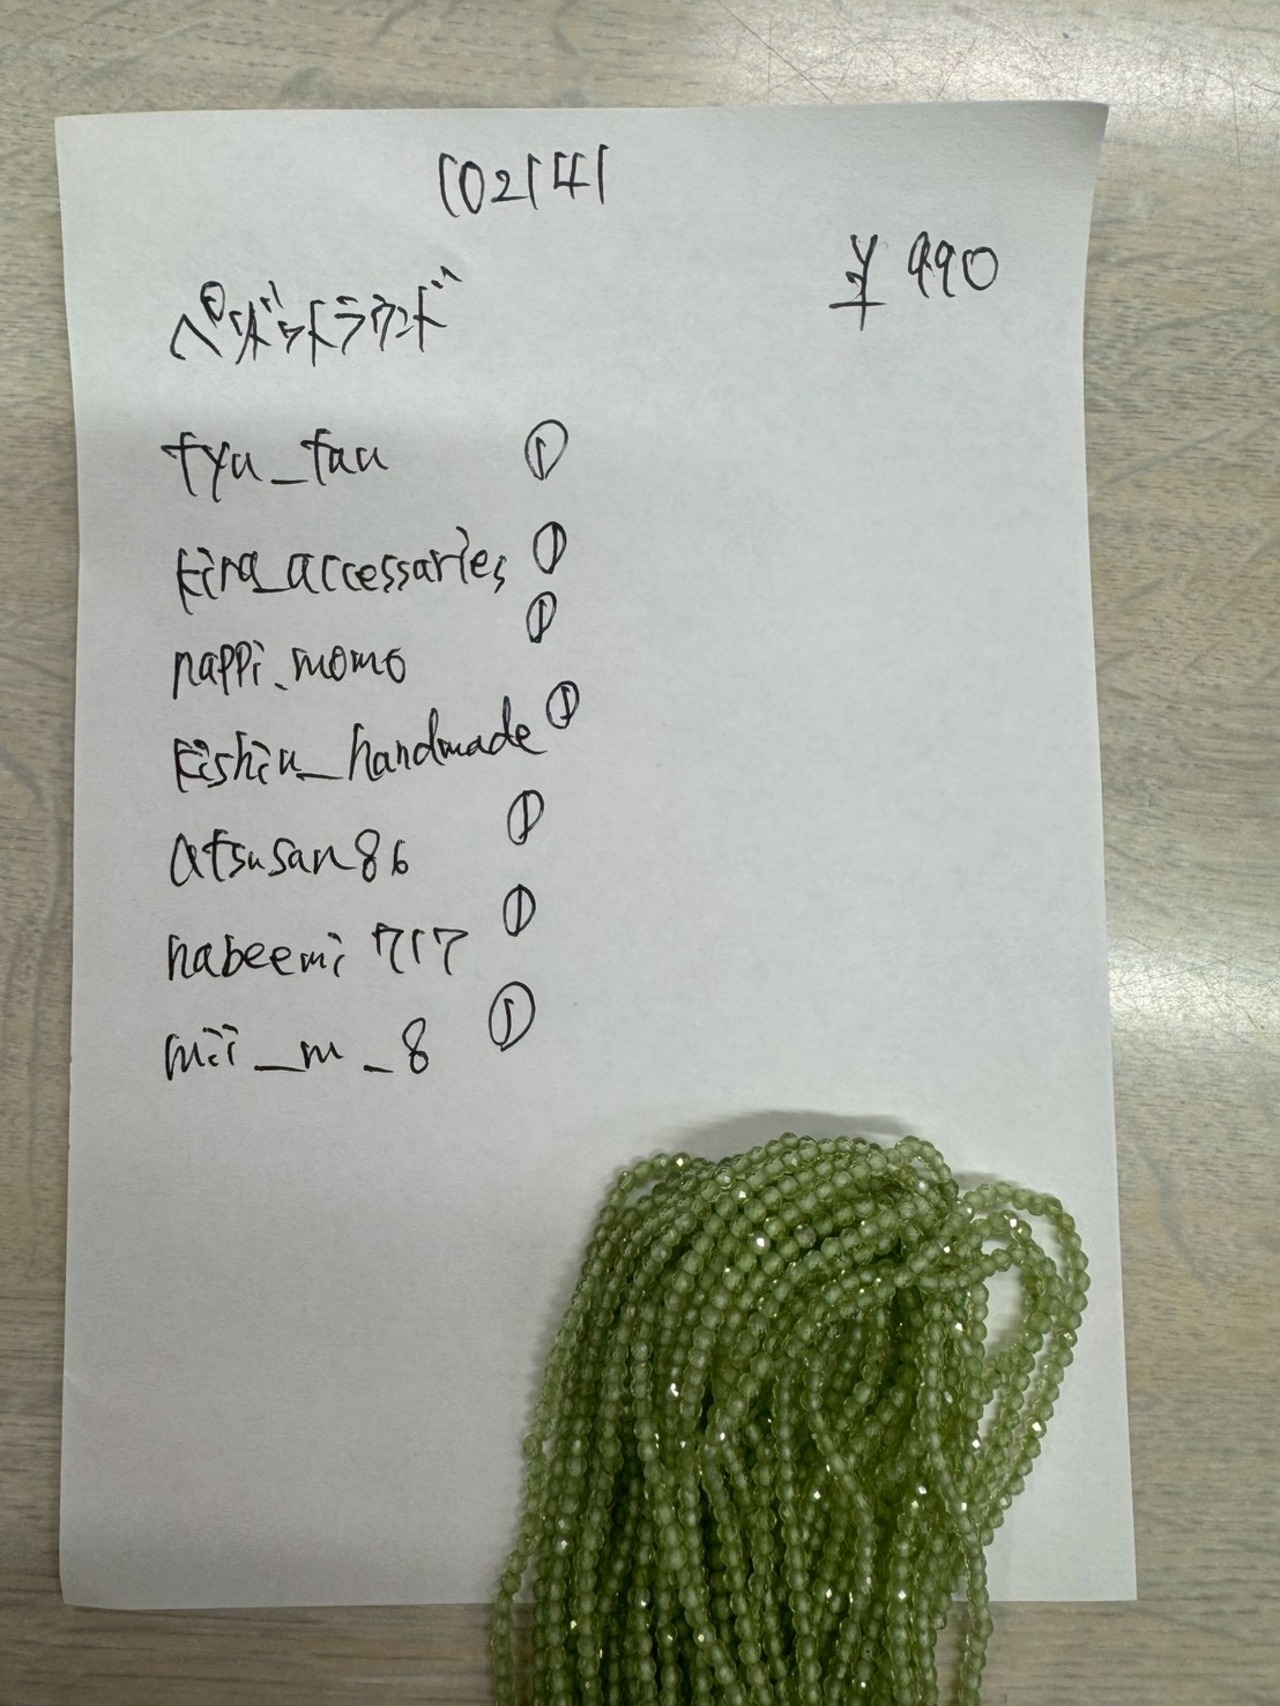 102141
¥990
ペリドットラウンド
tyu_tau ①
kira_accessaries ①
nappi_momo ①
kishiu_handmade ①
atsusan86 ①
nabeemi717 ①
mii_m_8 ①